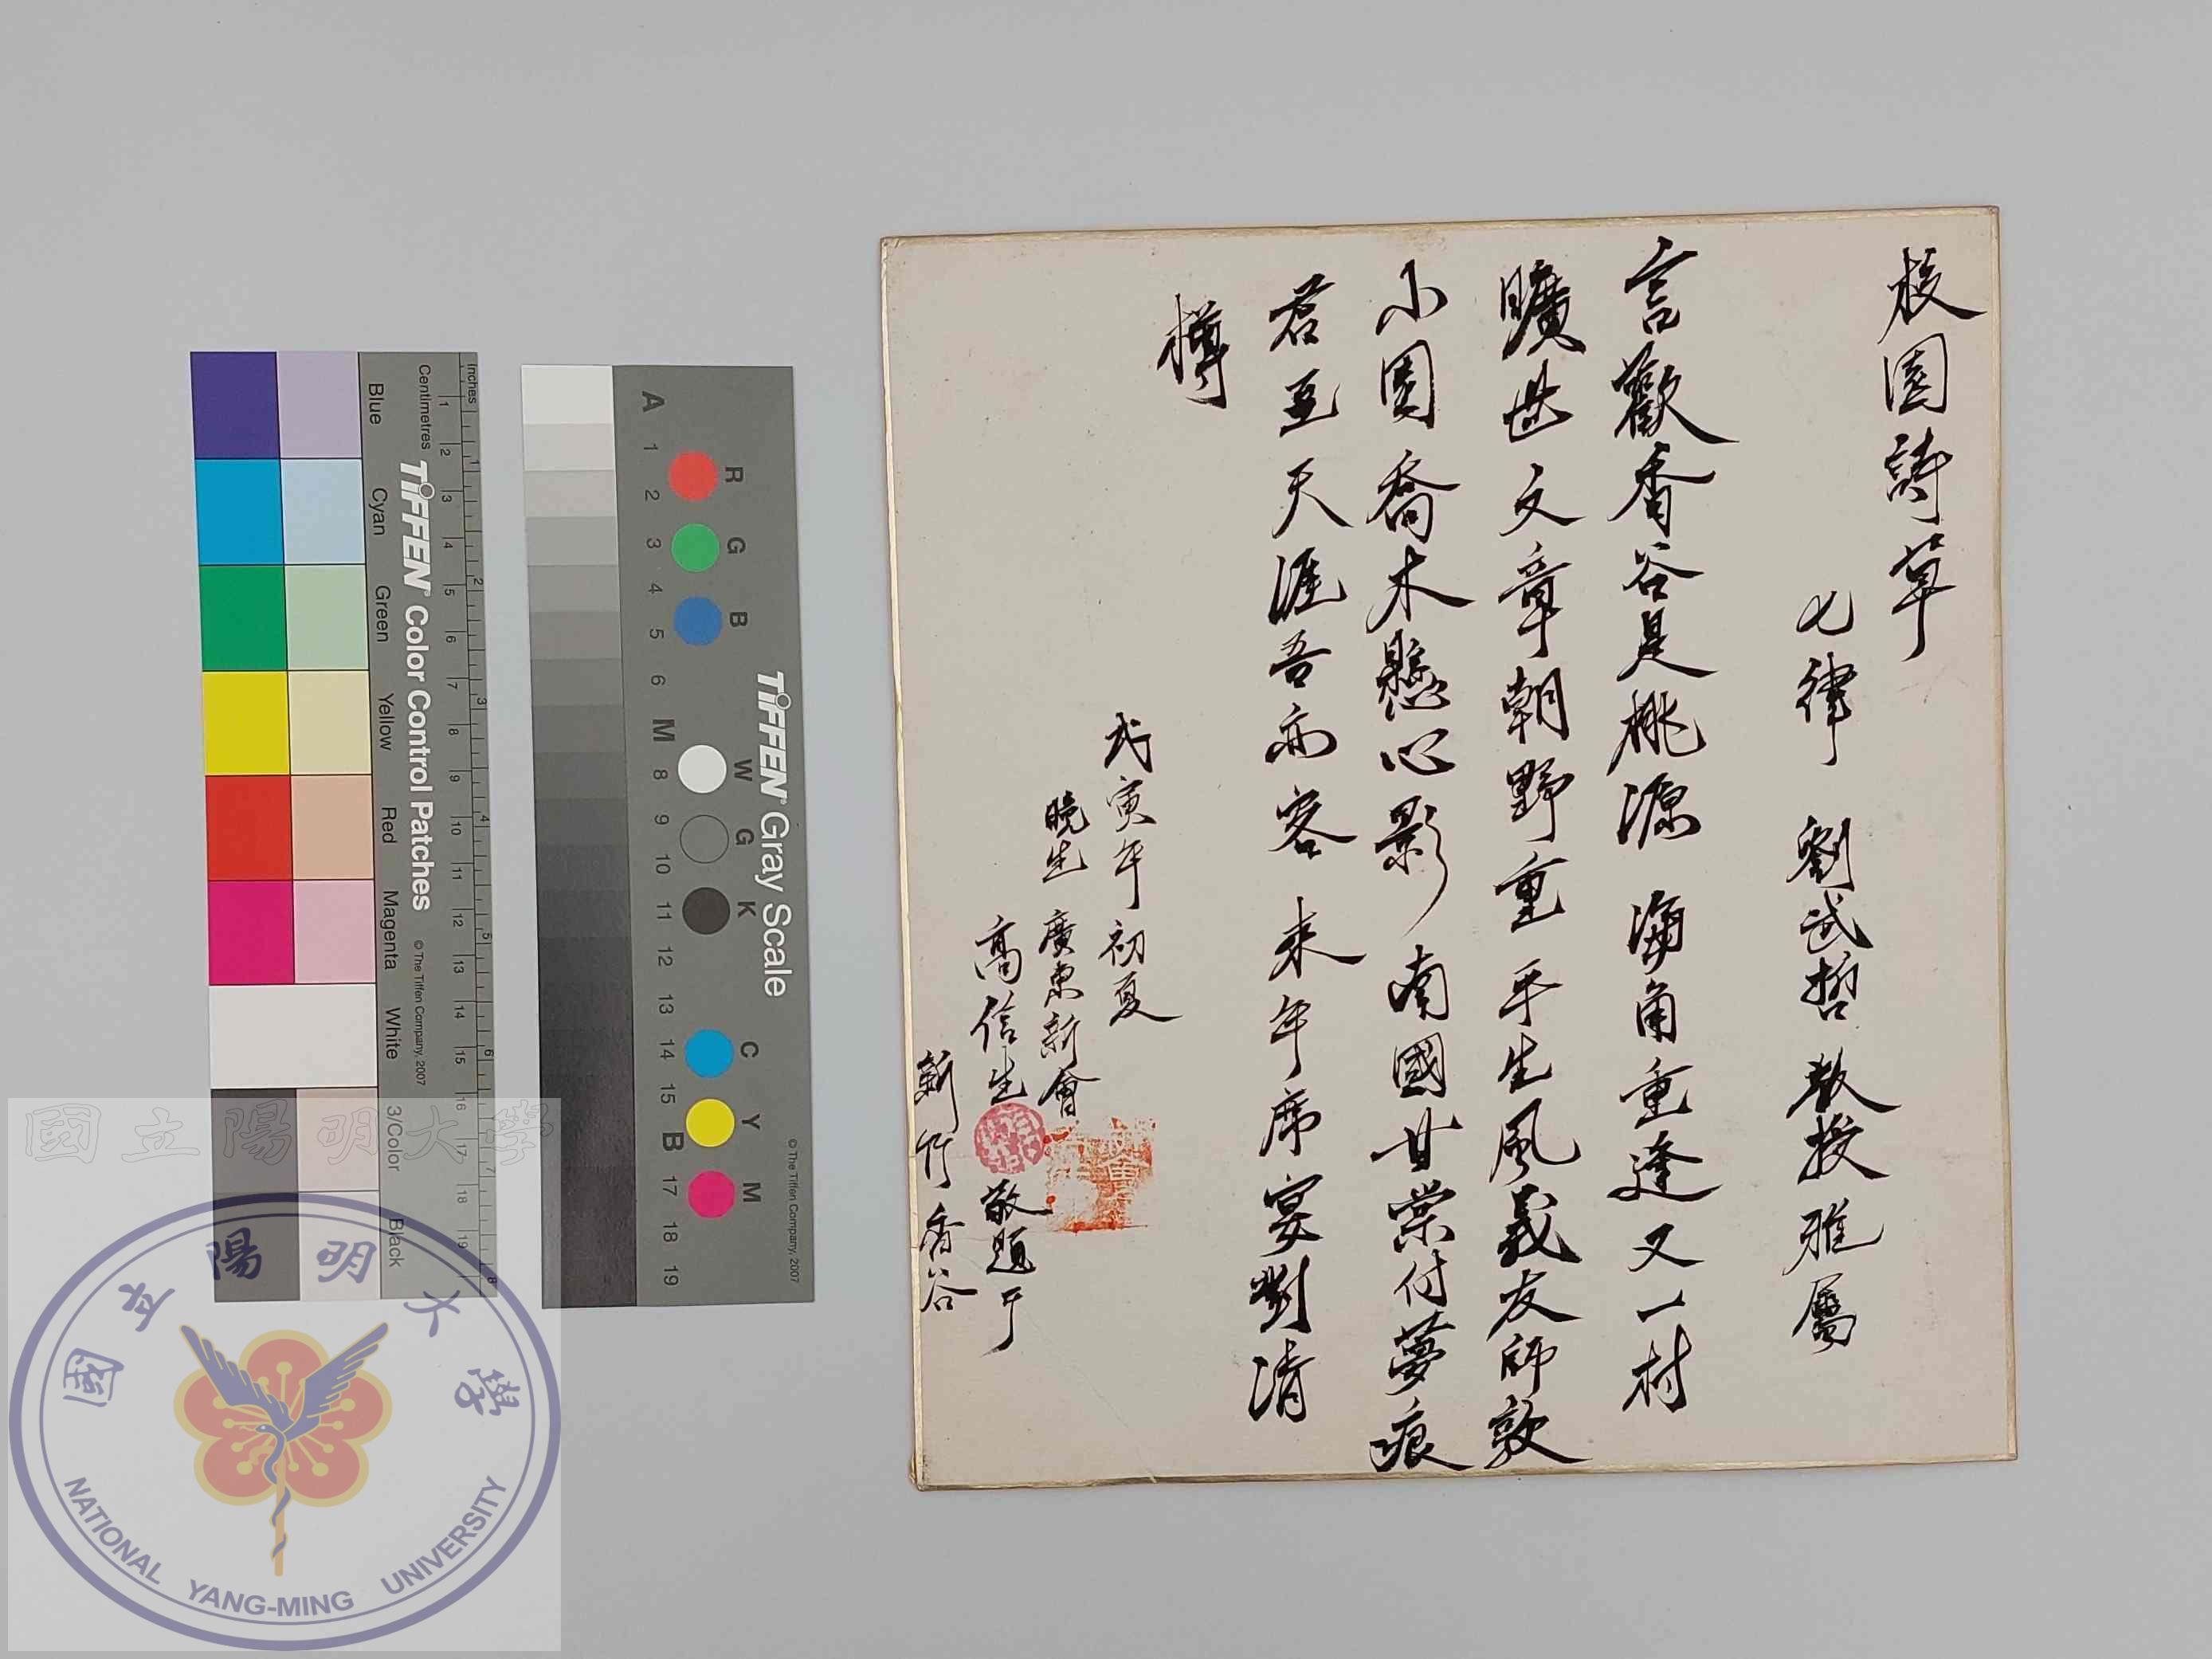 校園詩草
七律 劉武哲教授雅屬
言歡香谷是桃源 海角重逢又一村
曠世文章朝野重 平生風義友師敦
小園喬木懸心影 南國甘棠付夢痕
君至天涯吾亦客 來年席宴對清
樽
戊寅年初夏
晚生 廣東新會
高信生 敬題于
新竹香谷
Inches
Centimetres
TIFFEN Color Control Patches
© The Tiffen Company, 2007
Blue Cyan Green Yellow Red Magenta White 3/Color Black
TIFFEN Gray Scale
© The Tiffen Company, 2007
R G B W G K C Y M
A 1 2 3 4 5 6 M 8 9 10 11 12 13 14 15 B 17 18 19
國立陽明大學
國立陽明大學
NATIONAL YANG-MING UNIVERSITY